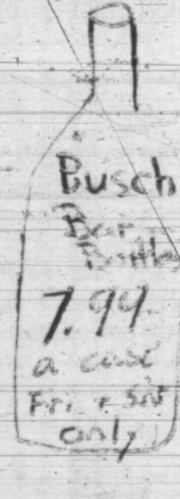 Busch
Bar
Bottle
7.99
a case
Fri + Sat
only